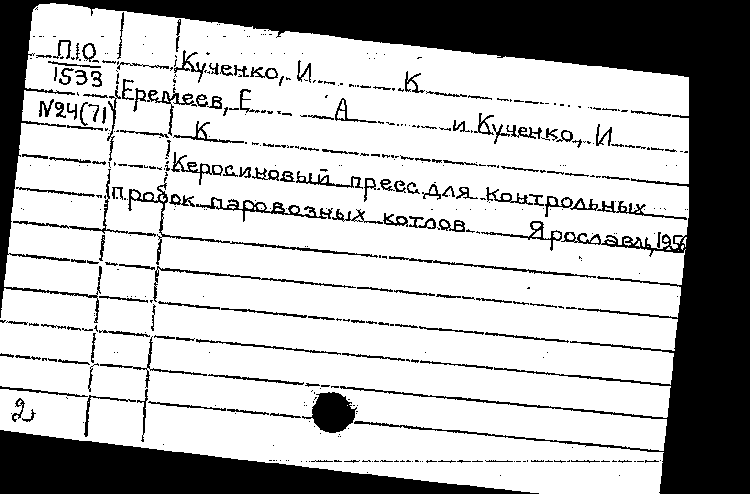 П10
1533
N24(71)
Кученко, И К
Еремеев, Е А и Кученко, И
К
Керосиновый пресс для контрольных
пробок паровозных котлов Ярославль,
2